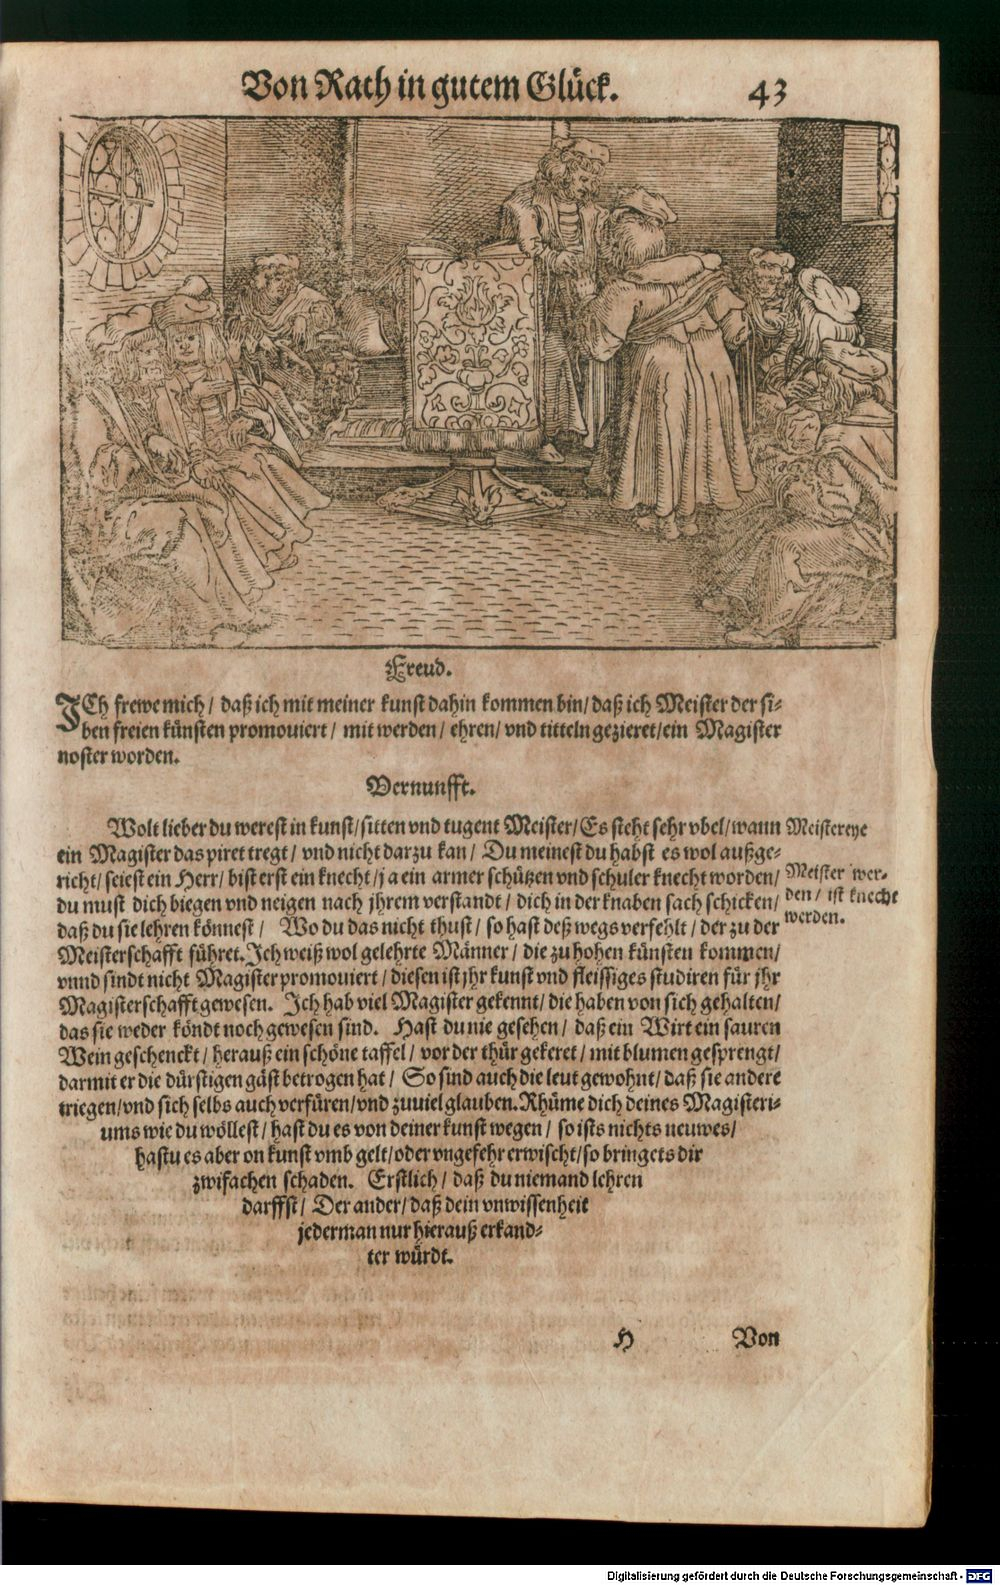 Von Rath in gutem Glück. 43
Freud.
ICh frewe mich / daß ich mit meiner kunst dahin kommen bin / daß ich Meister der si-
ben freien künsten promouiert / mit werden / ehren / vnd titteln gezieret / ein Magister
noster worden.
Vernunfft.
Wolt lieber du werest in kunst / sitten vnd tugent Meister / Es steht sehr vbel / wann
ein Magister das piret tregt / vnd nicht darzu kan / Du meinest du habst es wol außge-
richt / seiest ein Herr / bist erst ein knecht / ja ein armer schützen vnd schuler knecht worden /
du must dich biegen vnd neigen nach jhrem verstandt / dich in der knaben sach schicken /
daß du sie lehren könnest / Wo du das nicht thust / so hast deß wegs verfehlt / der zu der
Meisterschafft führet. Ich weiß wol gelehrte Männer / die zu hohen künsten kommen /
vnnd sindt nicht Magister promouiert / diesen ist jhr kunst vnd fleissiges studiren für jhr
Magisterschafft gewesen. Ich hab viel Magister gekennt / die haben von sich gehalten /
das sie weder köndt noch gewesen sind. Hast du nie gesehen / daß ein Wirt ein sauren
Wein geschenckt / herauß ein schöne taffel / vor der thür gekeret / mit blumen gesprengt /
darmit er die dürstigen gäst betrogen hat / So sind auch die leut gewohnt / daß sie andere
triegen / vnd sich selbs auch verfüren / vnd zuviel glauben. Rhüme dich deines Magisteri-
ums wie du wöllest / hast du es von deiner kunst wegen / so ists nichts neuwes /
hastu es aber on kunst vmb gelt / oder vngefehr erwischt / so bringets dir
zwifachen schaden. Erstlich / daß du niemand lehren
darffst / Der ander / daß dein vnwissenheit
jederman nur hierauß erkand-
ter würdt.
Meistereye
Meister wer-
den / ist knecht
werden.
H Von
Digitalisierung gefördert durch die Deutsche Forschungsgemeinschaft - DFG